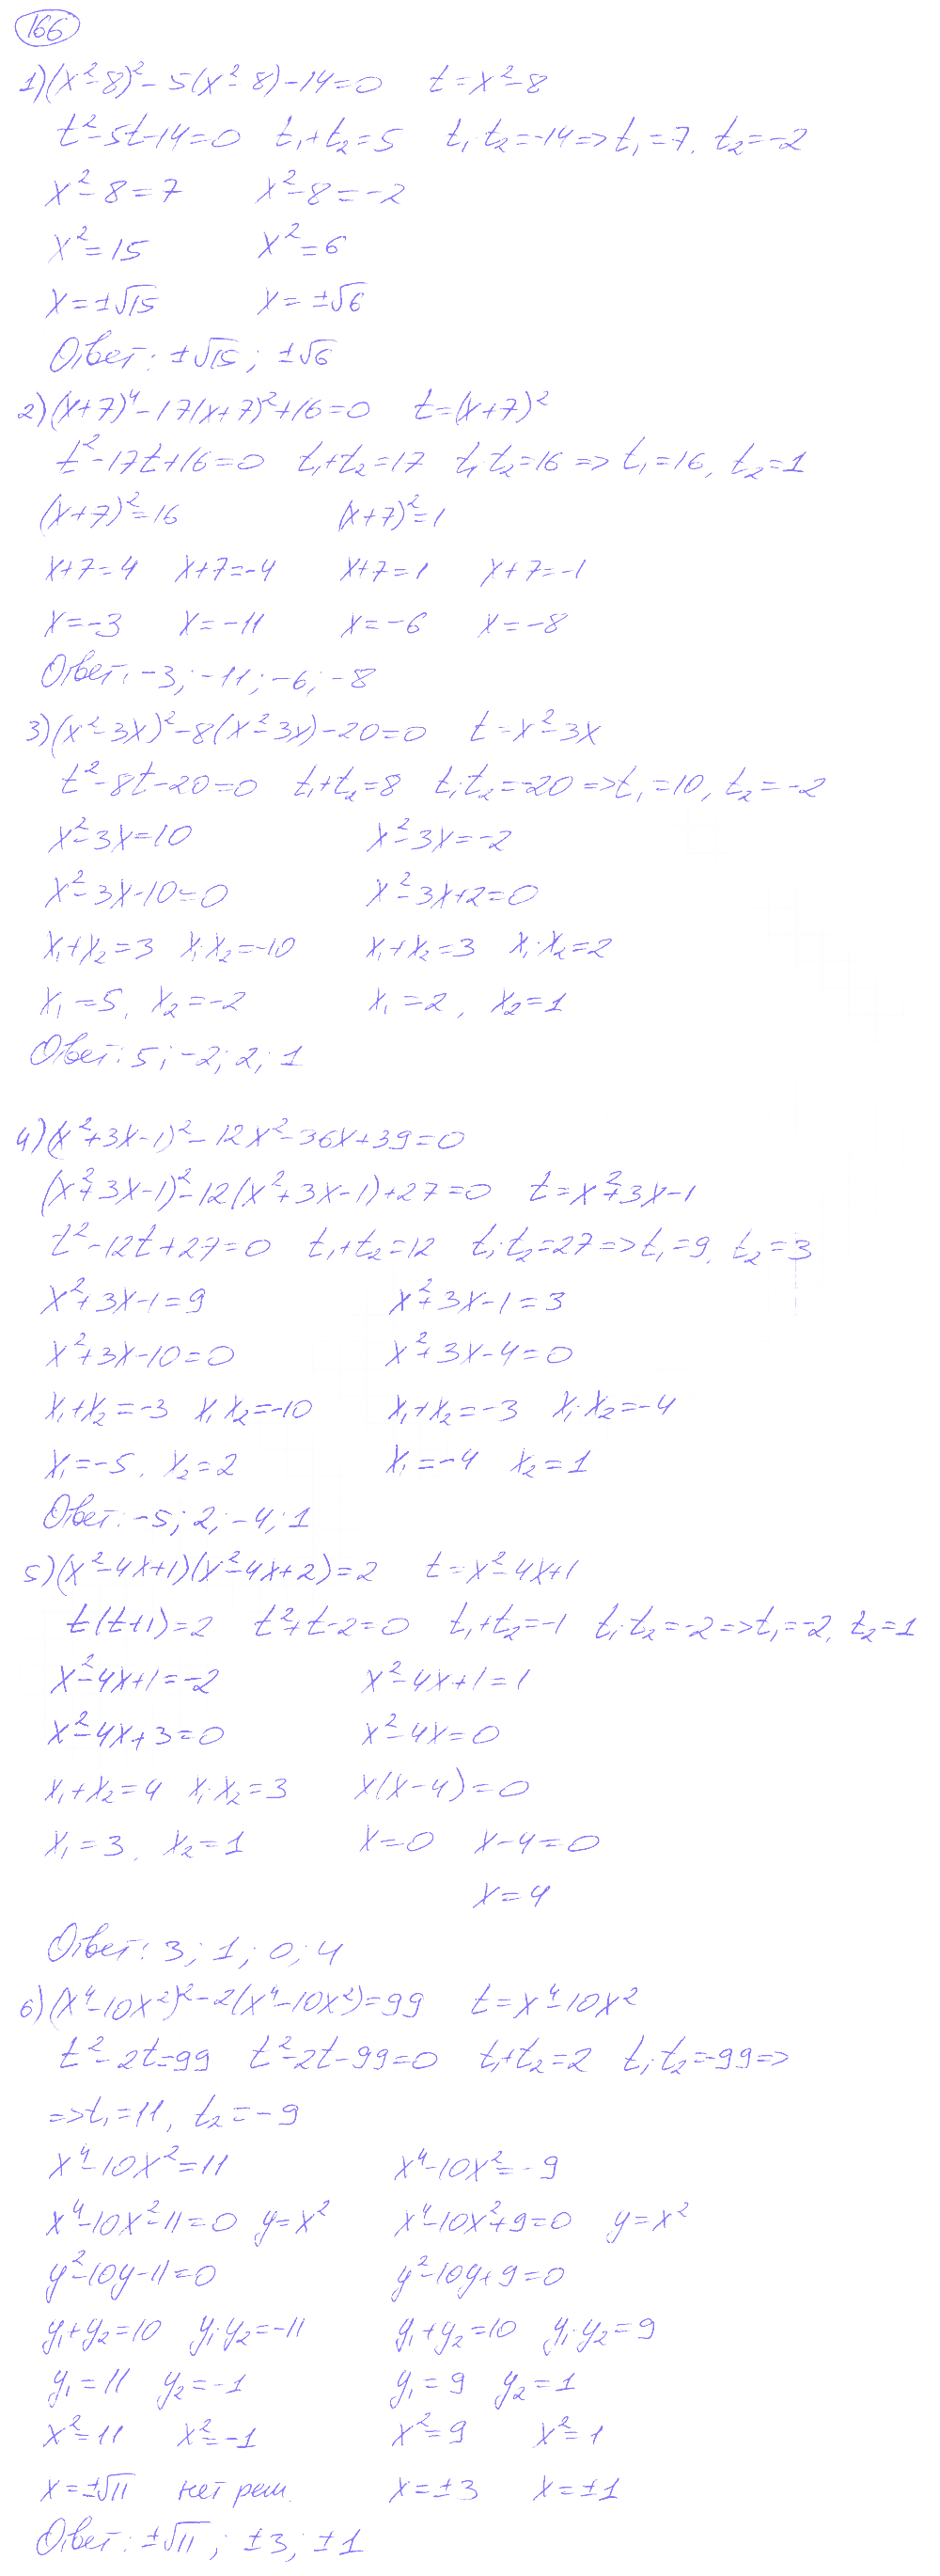 166
1) (x²-8)² - 5(x²-8) - 14 = 0   t = x²-8
t²-5t-14=0   t₁+t₂=5   t₁·t₂=-14 => t₁=7, t₂=-2
x²-8=7   x²-8=-2
x²=15   x²=6
x=±√15   x=±√6
Ответ: ±√15; ±√6
2) (x+7)⁴-17(x+7)²+16=0   t=(x+7)²
t²-17t+16=0   t₁+t₂=17   t₁·t₂=16 => t₁=16, t₂=1
(x+7)²=16   (x+7)²=1
x+7=4   x+7=-4   x+7=1   x+7=-1
x=-3   x=-11   x=-6   x=-8
Ответ: -3; -11; -6; -8
3) (x²-3x)²-8(x²-3x)-20=0   t=x²-3x
t²-8t-20=0   t₁+t₂=8   t₁·t₂=-20 => t₁=10, t₂=-2
x²-3x=10   x²-3x=-2
x²-3x-10=0   x²-3x+2=0
x₁+x₂=3   x₁·x₂=-10   x₁+x₂=3   x₁·x₂=2
x₁=5, x₂=-2   x₁=2, x₂=1
Ответ: 5; -2; 2; 1
4) (x²+3x-1)²-12x²-36x+39=0
(x²+3x-1)²-12(x²+3x-1)+27=0   t=x²+3x-1
t²-12t+27=0   t₁+t₂=12   t₁·t₂=27 => t₁=9, t₂=3
x²+3x-1=9   x²+3x-1=3
x²+3x-10=0   x²+3x-4=0
x₁+x₂=-3   x₁·x₂=-10   x₁+x₂=-3   x₁·x₂=-4
x₁=-5, x₂=2   x₁=-4   x₂=1
Ответ: -5; 2; -4; 1
5) (x²-4x+1)(x²-4x+2)=2   t=x²-4x+1
t(t+1)=2   t²+t-2=0   t₁+t₂=-1   t₁·t₂=-2 => t₁=-2, t₂=1
x²-4x+1=-2   x²-4x+1=1
x²-4x+3=0   x²-4x=0
x₁+x₂=4   x₁·x₂=3   x(x-4)=0
x₁=3, x₂=1   x=0   x-4=0
x=4
Ответ: 3; 1; 0; 4
6) (x⁴-10x²)²-2(x⁴-10x²)=99   t=x⁴-10x²
t²-2t=99   t²-2t-99=0   t₁+t₂=2   t₁·t₂=-99 =>
=> t₁=11, t₂=-9
x⁴-10x²=11   x⁴-10x²=-9
x⁴-10x²-11=0   y=x²   x⁴-10x²+9=0   y=x²
y²-10y-11=0   y²-10y+9=0
y₁+y₂=10   y₁·y₂=-11   y₁+y₂=10   y₁·y₂=9
y₁=11   y₂=-1   y₁=9   y₂=1
x²=11   x²=-1   x²=9   x²=1
x=±√11   нет реш.   x=±3   x=±1
Ответ: ±√11; ±3; ±1